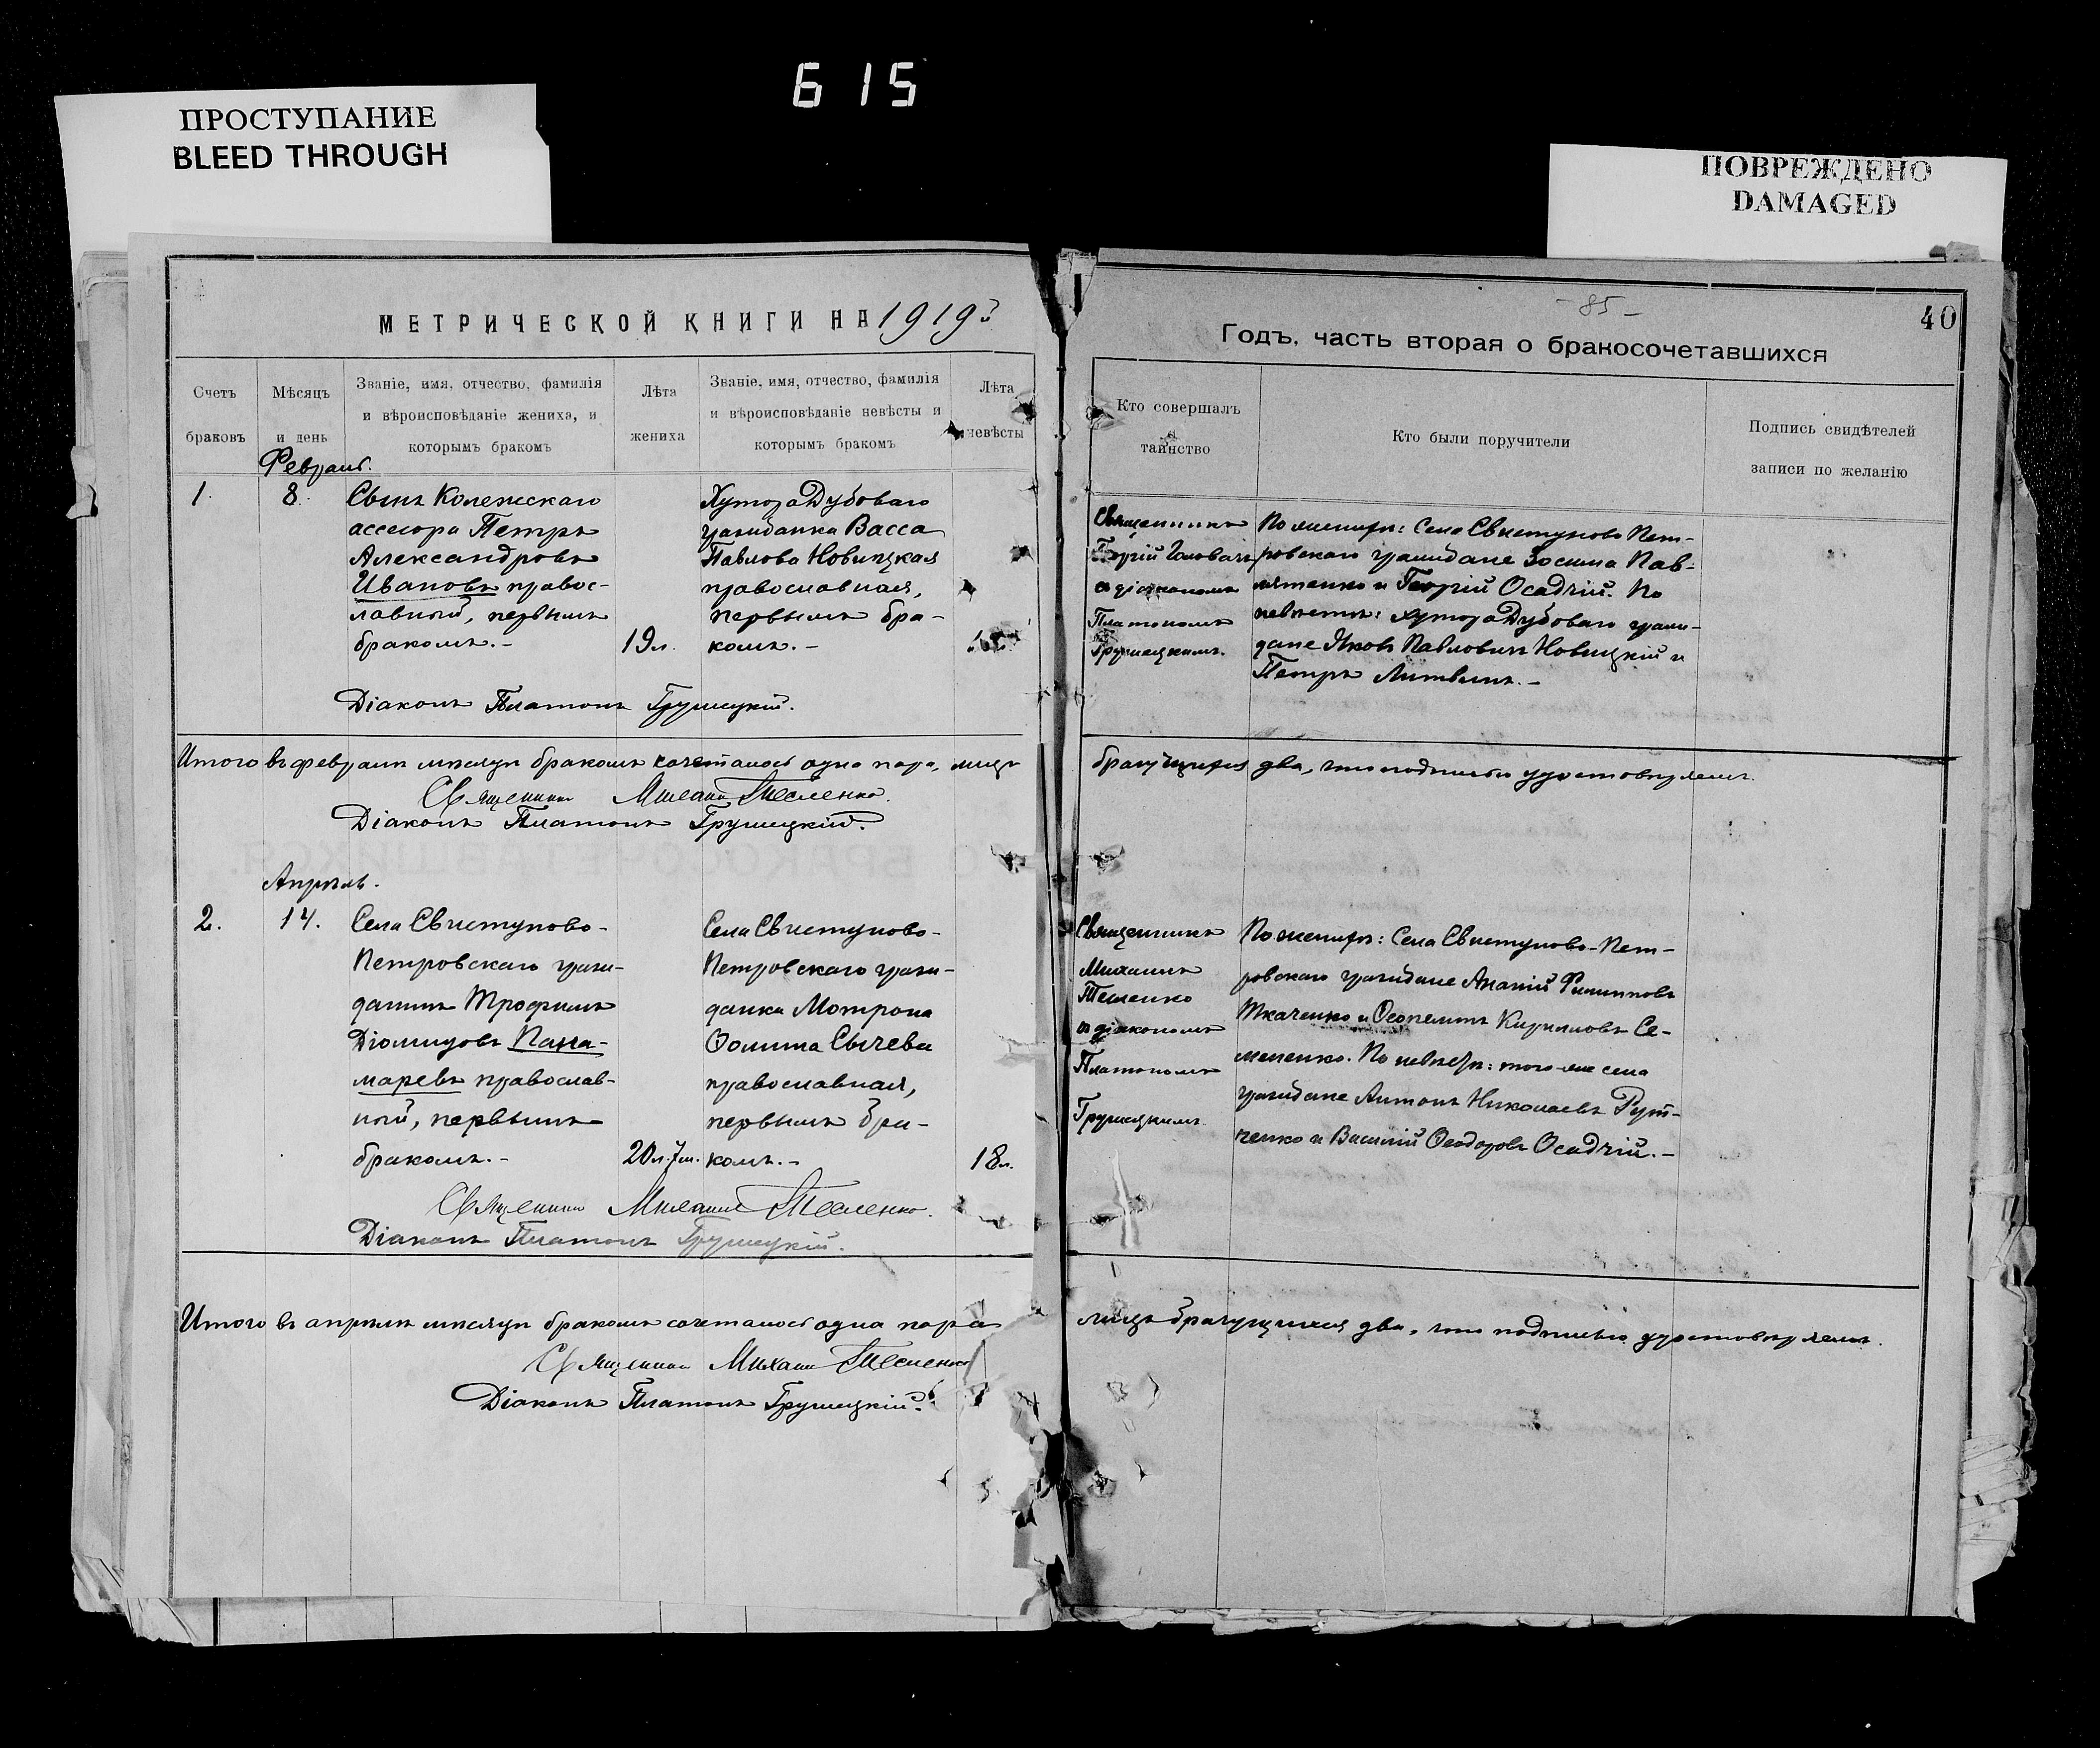 615
ПРОСТУПАНИЕ
BLEED THROUGH
ПОВРЕЖДЕНО
DAMAGED
МЕТРИЧЕСКОЙ КНИГИ НА 1919
Счетъ
браковъ
Мѣсяцъ
и день
Званіе, имя, отчество, фамилія
и вѣроисповѣданіе жениха, и
которымъ бракомъ
Лѣта
жениха
Званіе, имя, отчество, фамилія
и вѣроисповѣданіе невѣсты и
которымъ бракомъ
Лѣта
невѣсты
Февраль.
1.
8.
Сынъ Колежскаго
ассесора Петръ
Александровъ
Ивановъ правос-
лавный, первымъ
бракомъ.-
19л.
Хутора Дубоваго
гражданка Васса
Павлова Новицкая
православная,
первымъ бра-
комъ.-
Діаконъ Платонъ Грушецкій.
Итого въ февралѣ мѣсяцѣ бракомъ сочеталось одна пара, лицъ
Священникъ Михаилъ Тесленко.
Діаконъ Платонъ Грушецкій.
Апрѣль.
2.
14.
Села Свистуново-
Петровскаго граж-
данинъ Трофимъ
Діомидовъ Пана-
маревъ православ-
ный, первымъ
бракомъ.-
20л.7м.
Села Свистуново-
Петровскаго граж-
данка Мотрона
Ѳомина Сычева
православная,
первымъ бра-
комъ.-
18л.
Священникъ Михаилъ Тесленко.
Діаконъ Платонъ Грушецкій.
Итого въ апрѣлѣ мѣсяцѣ бракомъ сочеталось одна пара
Священникъ Михаилъ Тесленко
Діаконъ Платонъ Грушецкій.
-85-
40
Годъ, часть вторая о бракосочетавшихся
Кто совершалъ
таинство
Кто были поручители
Подпись свидѣтелей
записи по желанію
Священникъ
Георгій Головачъ
съ діакономъ
Платономъ
Грушецкимъ.
По женихѣ: Села Свистуново Пет-
ровскаго граждане Зосима Пав-
и Георгій Осадчій. По
невѣстѣ: хутора Дубоваго граж-
дане Яковъ Павловичъ Новицкій и
Петръ Литвинъ.-
брачущихся два, что подписью удостовѣряемъ.
Священникъ
Михаилъ
Тесленко
съ діакономъ
Платономъ
Грушецкимъ
По женихѣ: Села Свистуново-Пет-
ровскаго граждане Ананій Филипповъ
Ткаченко и Ѳеопемптъ Кирилловъ Се-
мененко. По невѣстѣ: того-же села
граждане Антонъ Николаевъ
и Василій Ѳеодоровъ Осадчій.-
лицъ брачущихся два, что подписью удостовѣряемъ.